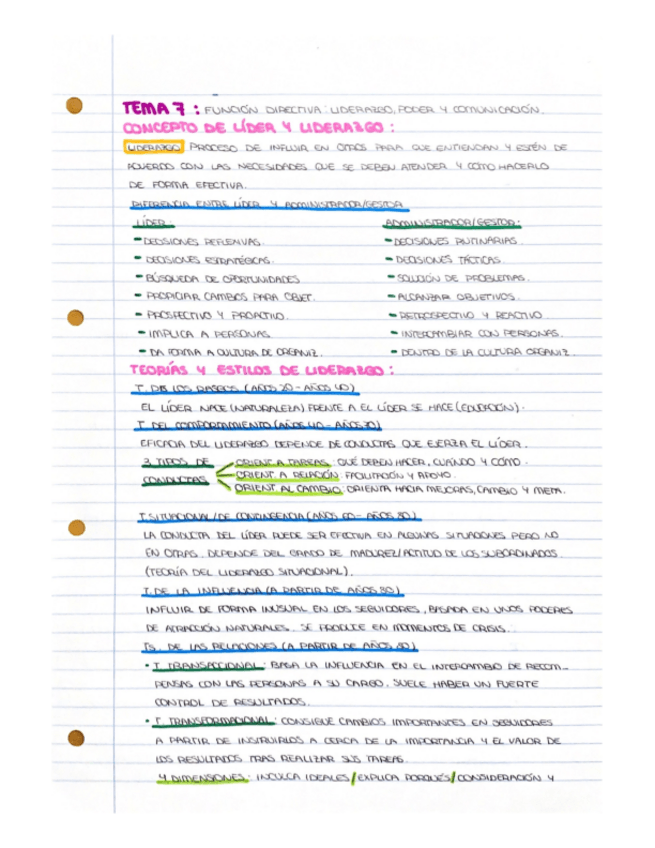 TEMA 7 : FUNCIÓN DIRECTIVA: LIDERAZGO, PODER Y COMUNICACIÓN.
CONCEPTO DE LÍDER Y LIDERAZGO :
LIDERAZGO: PROCESO DE INFLUIR EN OTROS PARA QUE ENTIENDAN Y ESTÉN DE
ACUERDO CON LAS NECESIDADES QUE SE DEBEN ATENDER Y CÓMO HACERLO
DE FORMA EFECTIVA.
DIFERENCIA ENTRE LÍDER Y ADMINISTRADOR/GESTOR
LÍDER:
- DECISIONES REFLEXIVAS.
- DECISIONES ESTRATÉGICAS.
- BÚSQUEDA DE OPORTUNIDADES
- PROPICIAR CAMBIOS PARA OBJET.
- PROSPECTIVO Y PROACTIVO.
- IMPLICA A PERSONAS
- DA FORMA A CULTURA DE ORGANIZ.
ADMINISTRADOR/GESTOR:
- DECISIONES RUTINARIAS.
- DECISIONES TÁCTICAS.
- SOLUCIÓN DE PROBLEMAS.
- ALCANZAR OBJETIVOS.
- RETROSPECTIVO Y REACTIVO.
- INTERCAMBIAR CON PERSONAS.
- DENTRO DE LA CULTURA ORGANIZ.
TEORÍAS Y ESTILOS DE LIDERAZGO :
T. DE LOS RASGOS (AÑOS 20 - AÑOS 40)
EL LÍDER NACE (NATURALEZA) FRENTE A EL LÍDER SE HACE (EDUCACIÓN).
T. DEL COMPORTAMIENTO (AÑOS 40 - AÑOS 70)
EFICACIA DEL LIDERAZGO DEPENDE DE CONDUCTAS QUE EJERZA EL LÍDER.
3 TIPOS DE CONDUCTAS
ORIENT. A TAREAS: QUÉ DEBEN HACER, CUÁNDO Y CÓMO.
ORIENT. A RELACIÓN: FACILITACIÓN Y APOYO.
ORIENT. AL CAMBIO: ORIENTA HACIA MEJORAS, CAMBIO Y META.
T. SITUACIONAL/DE CONTINGENCIA (AÑOS 60 - AÑOS 80)
LA CONDUCTA DEL LÍDER PUEDE SER EFECTIVA EN ALGUNAS SITUACIONES PERO NO
EN OTRAS. DEPENDE DEL GRADO DE MADUREZ/ACTITUD DE LOS SUBORDINADOS
(TEORÍA DEL LIDERAZGO SITUACIONAL).
T. DE LA INFLUENCIA (A PARTIR DE AÑOS 80)
INFLUIR DE FORMA INUSUAL EN LOS SEGUIDORES, BASADA EN UNOS PODERES
DE ATRACCIÓN NATURALES. SE PRODUCE EN MOMENTOS DE CRISIS.
TS. DE LAS RELACIONES (A PARTIR DE AÑOS 80)
• T. TRANSACCIONAL: BASA LA INFLUENCIA EN EL INTERCAMBIO DE RECOM-
PENSAS CON LAS PERSONAS A SU CARGO. SUELE HABER UN FUERTE
CONTROL DE RESULTADOS.
• T. TRANSFORMACIONAL: CONSIGUE CAMBIOS IMPORTANTES EN SEGUIDORES
A PARTIR DE INSTRUIRLOS A CERCA DE LA IMPORTANCIA Y EL VALOR DE
LOS RESULTADOS TRAS REALIZAR SUS TAREAS.
4 DIMENSIONES: INCULCA IDEALES/EXPLICA PORQUÉS/CONSIDERACIÓN Y